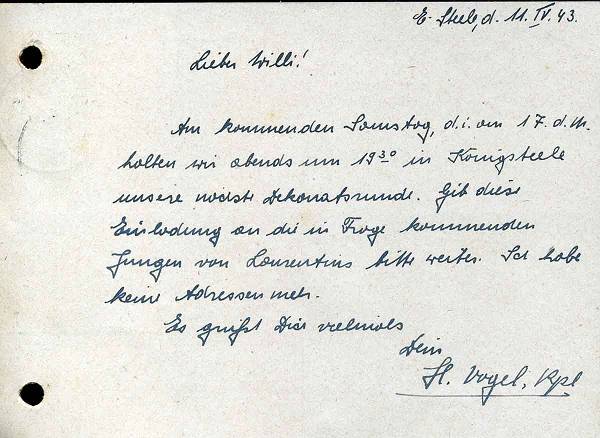 E. Steele, d. 11. IV. 43.
Lieber Willi!
Am kommenden Samstag, d. i. am 17. d. M.
halten wir abends um 19 30 in Königsteele
unsere nächste Dekanatsrunde. Gib diese
Einladung an die in Frage kommenden
Jungen von Laurentius bitte weiter. Ich habe
keine Adressen mehr.
Es grüßt Dich vielmals
Dein
H. Vogel, Kpl